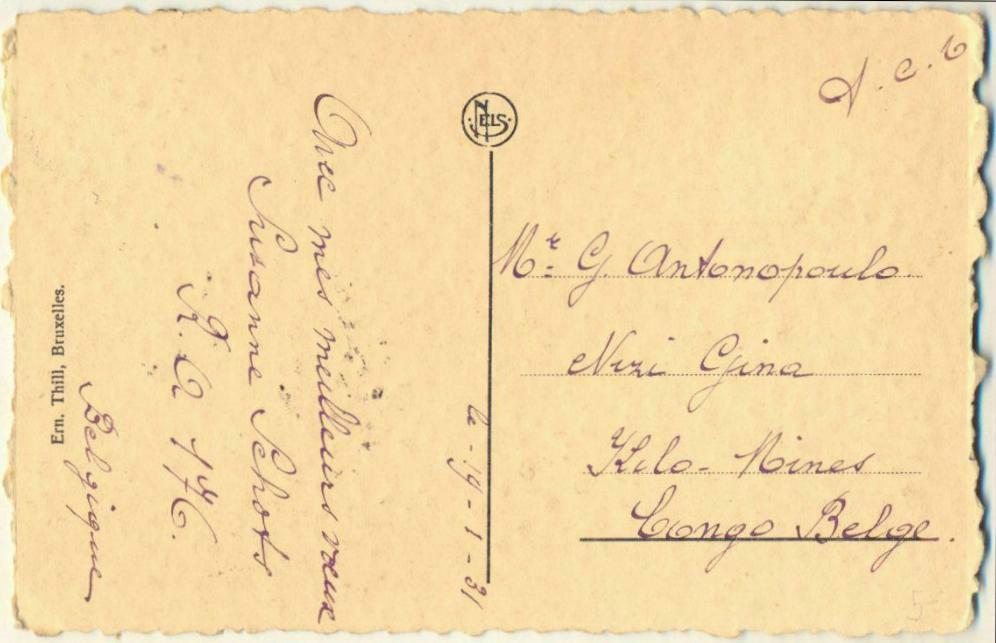 Avec mes meilleurs vœux
Susanne Schots
R. A 176.
Belgique
Ern. Thill, Bruxelles.
le - 19 - 1 - 31
NELS
A. C. 6
Mr G. Antonopoulo
Nizi Gjina
Kilo - Mines
Congo Belge.